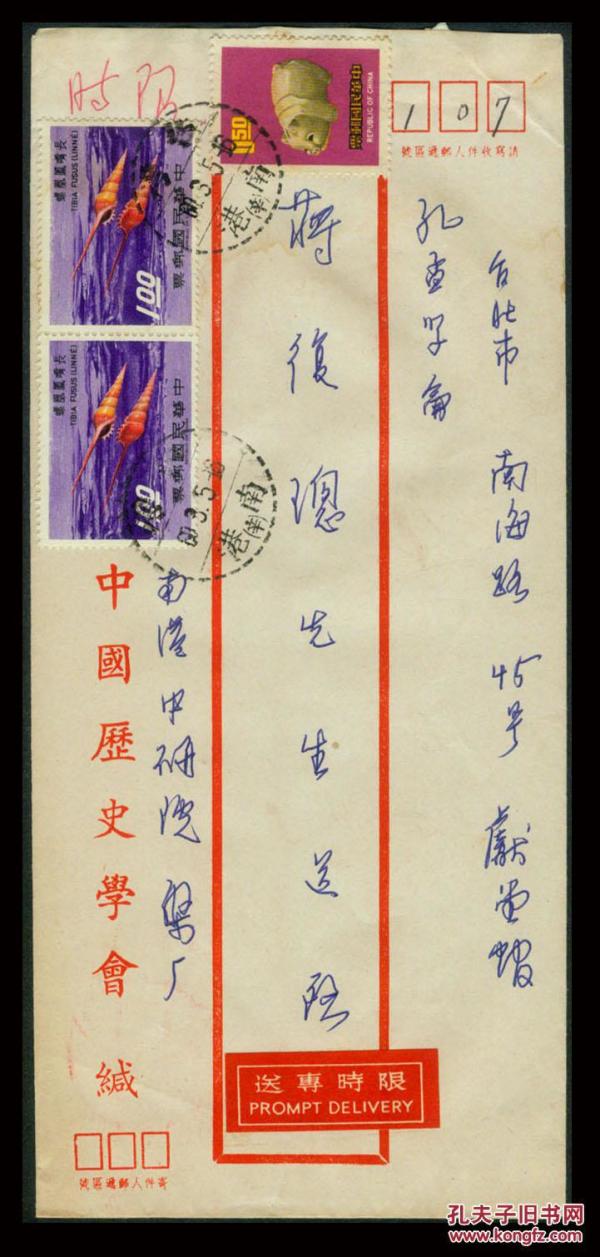 時限
中華民國郵票
REPUBLIC OF CHINA
1.50
1 0 7
請寫收件人郵遞區號
台北市 南海路 45号
孔孟学會
蔣復璁先生 送啟
長嘴鳳凰螺
TIBIA FUSUS (LINNÉ)
中華民國郵票
1.00
長嘴鳳凰螺
TIBIA FUSUS (LINNÉ)
中華民國郵票
1.00
南港
3.5.16
南港
60 3.5.16
南港中研院
中國歷史學會 緘
限時專送
PROMPT DELIVERY
寄件人郵遞區號
孔夫子旧书网
KONGFZ.COM